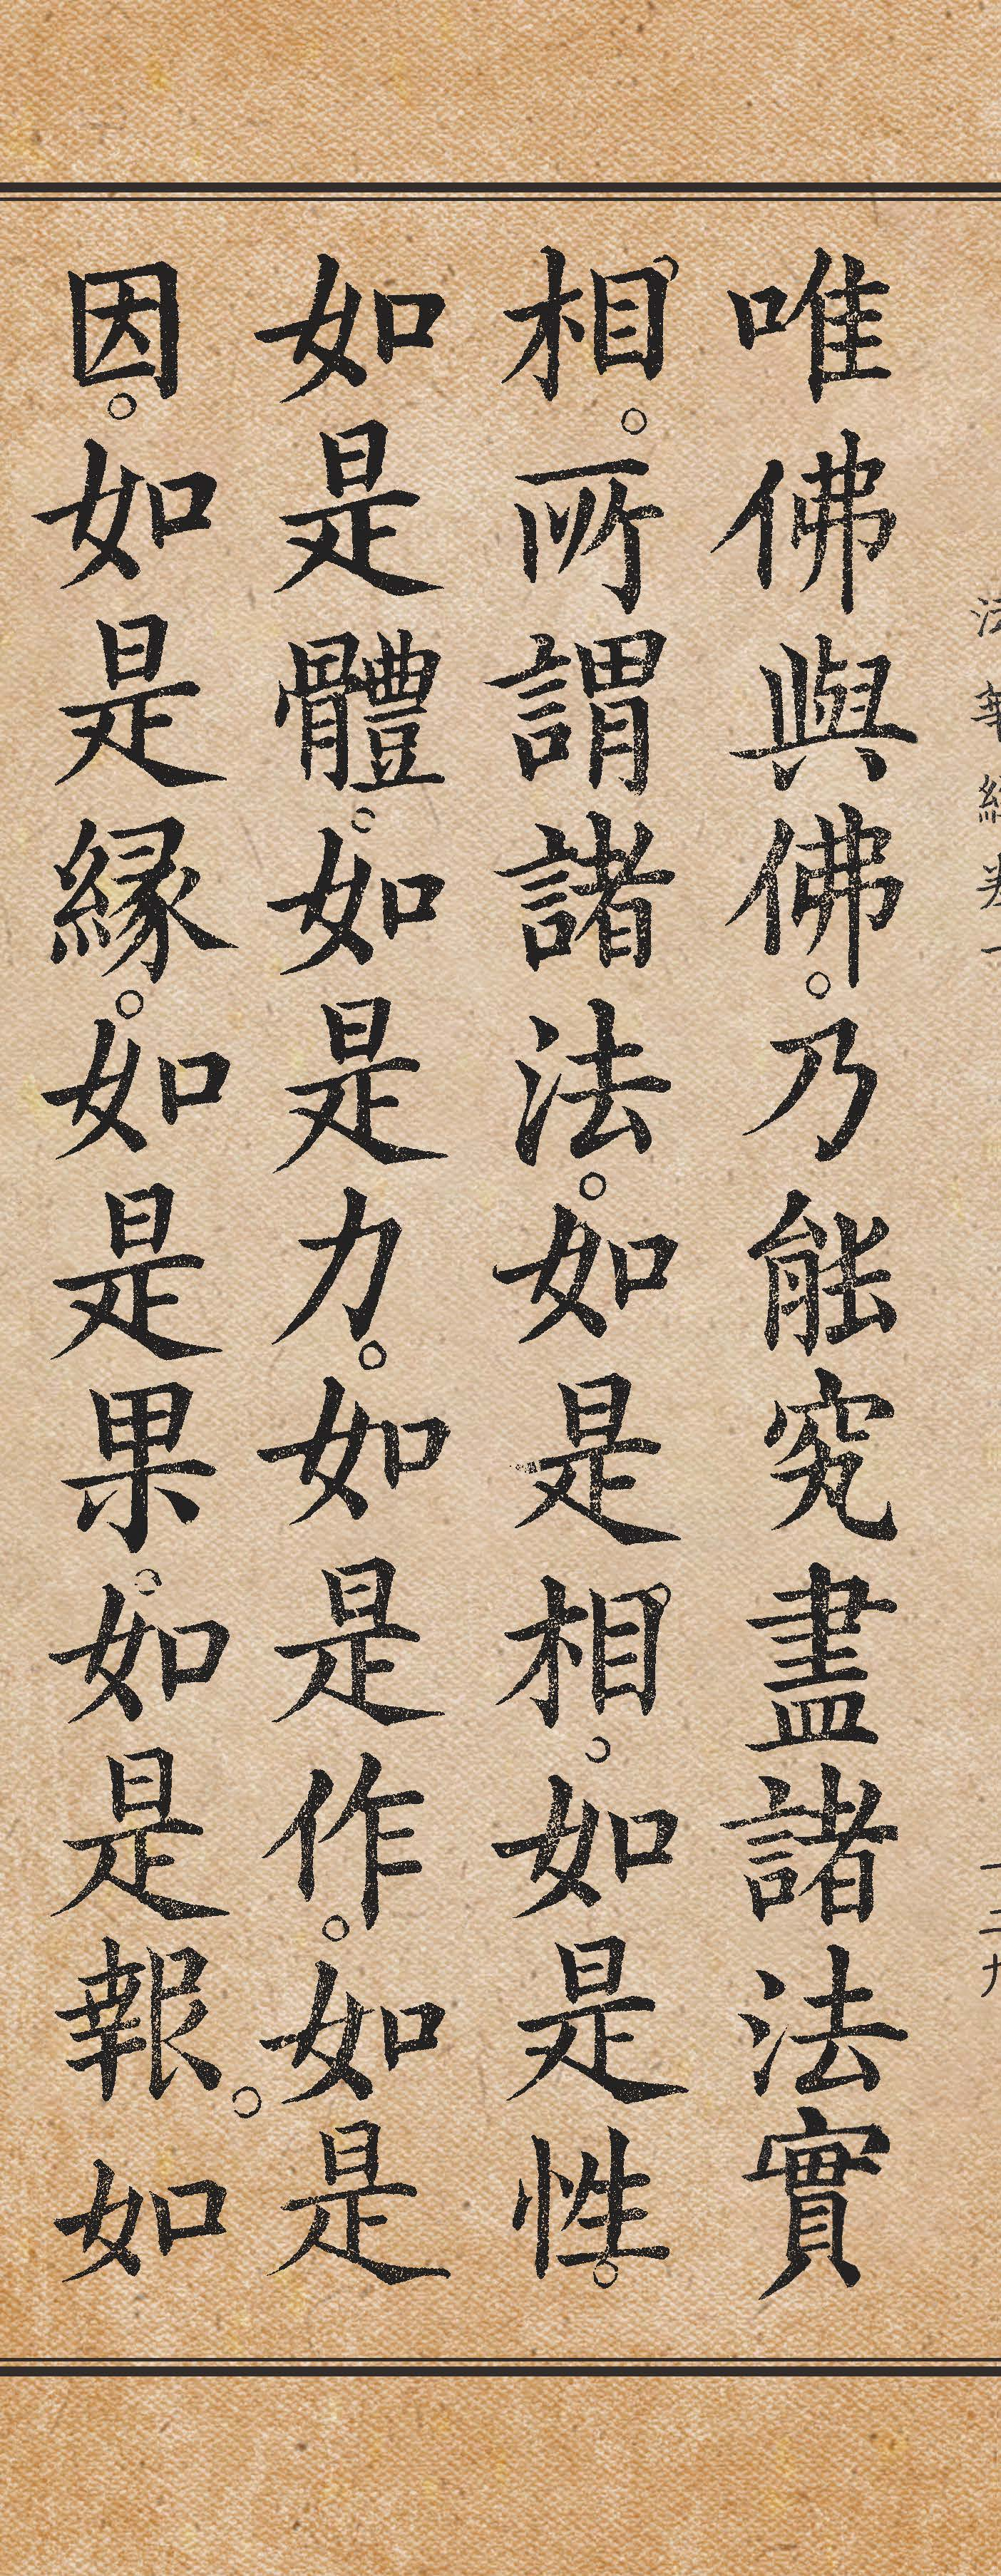 唯佛與佛。乃能究盡諸法實
相。所謂諸法。如是相。如是性。
如是體。如是力。如是作。如是
因。如是緣。如是果。如是報。如